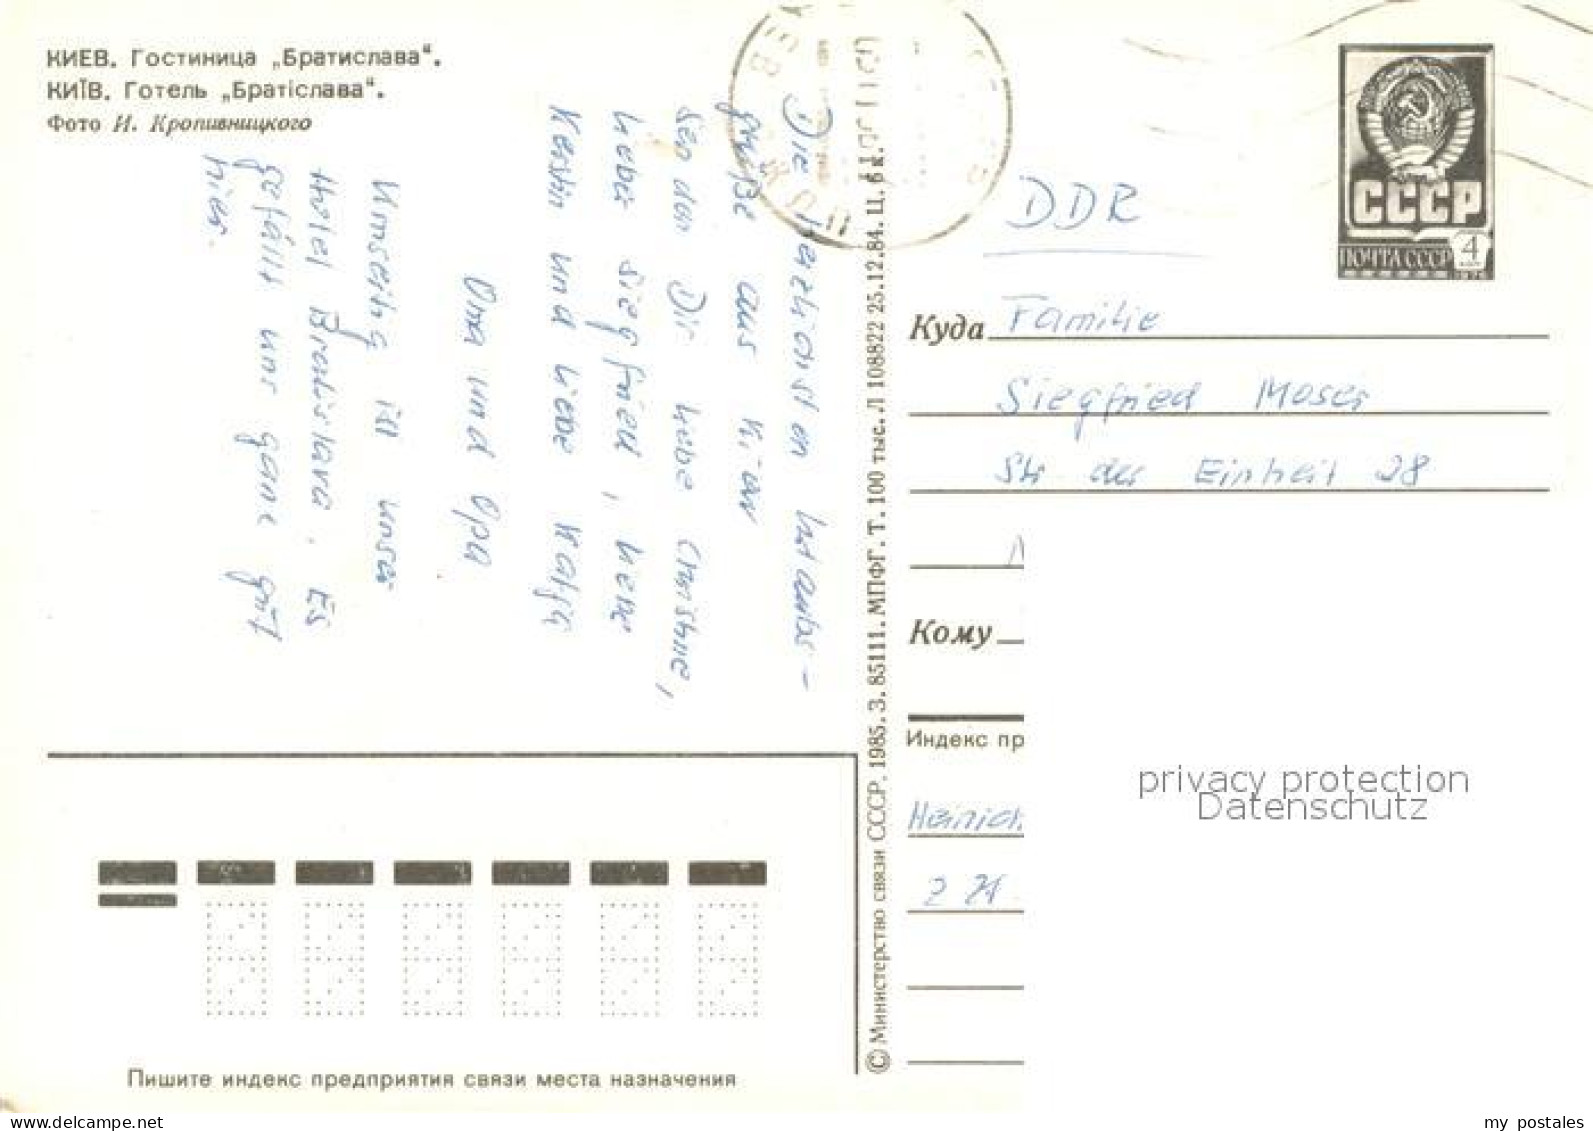 КИЕВ. Гостиница „Братислава“.
КИЇВ. Готель „Братіслава“.
Фото И. Кропивницкого
Die herzlichsten Urlaubs-
grüße aus Kiew
senden Dir liebe Christine,
lieber Siegfried, liebe
Kerstin und liebe Katja
Oma und Opa
Umseitig ist unser
Hotel Bratislava. Es
gefällt uns ganz gut
hier.
Пишите индекс предприятия связи места назначения
© Министерство связи СССР. 1985. З. 85111. МПФГ. Т. 100 тыс. Л 108822 25.12.84. Ц. 6 к.
СССР
4
ПОЧТА СССР
DDR
Куда Familie
Siegfried Moser
Str der Einheit 28
Кому
Индекс пр
privacy protection
Datenschutz
delcampe.net
my_postales